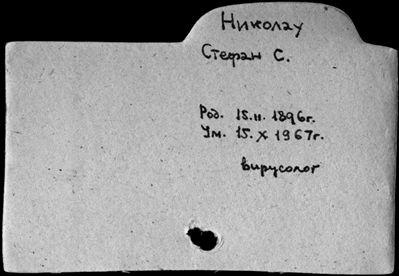 Николау
Стефан С.
Род. 15.II. 1896г.
Ум. 15.X 1967г.
вирусолог